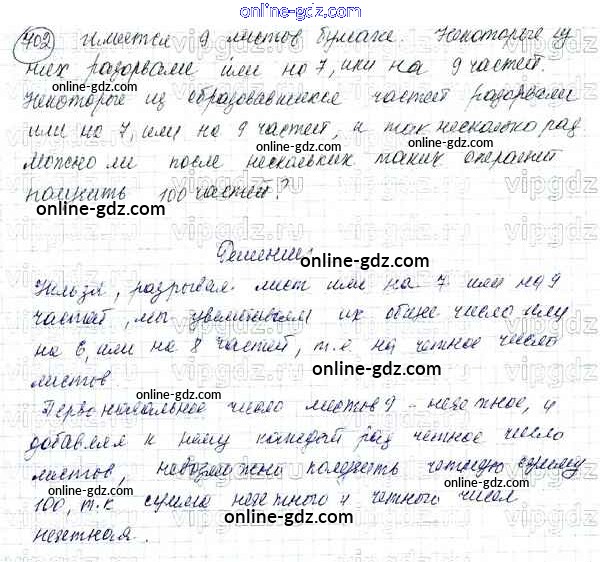 online-gdz.com
702 Имеется 9 листов бумаги. Некоторые из
них разорвали или на 7, или на 9 частей.
Некоторые из образовавшихся частей разорвали
или на 7, или на 9 частей, и так несколько раз
Можно ли после нескольких таких операций
получить 100 частей?
Решение:
Нельзя, разрывая лист или на 7 или на 9
частей, мы увеличиваем их общее число или
на 6, или на 8 частей, т.е на четное число
листов.
Первоначальное число листов 9 - нечетное, и
добавляя к нему каждый раз четное число
листов, невозможно получить четную сумму
100, т.к сумма нечетного и четного чисел
нечетная.
online-gdz.com